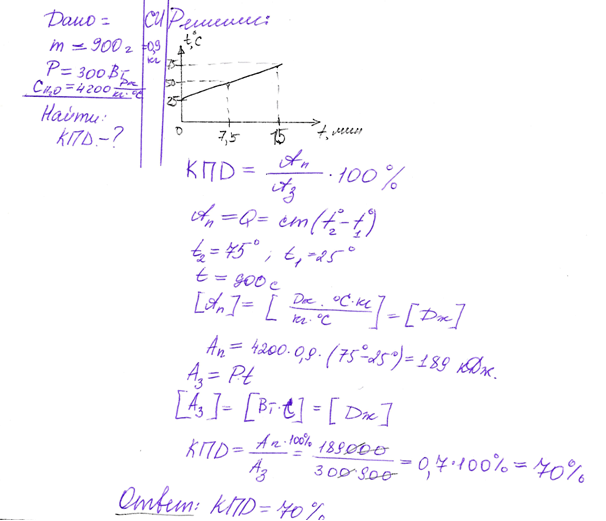 Дано =
СИ
Решение:
m = 900 г
=0,9 кг
P = 300 Вт
C H₂O = 4200 Дж/кг·°C
Найти:
КПД - ?
t,°C
75
50
25
0
7,5
15
t, мин
КПД = Aп/Aз · 100%
Aп = Q = cm(t°₂ - t°₁)
t₂ = 75° ; t₁ = 25°
t = 900 с
[Aп] = [Дж · °C · кг / кг · °C] = [Дж]
Aп = 4200 · 0,9 · (75° - 25°) = 189 кДж.
Aз = P·t
[Aз] = [Вт · с] = [Дж]
КПД = Aп · 100% / Aз = 189000 / 300·900 = 0,7 · 100% = 70%
Ответ: КПД = 70%